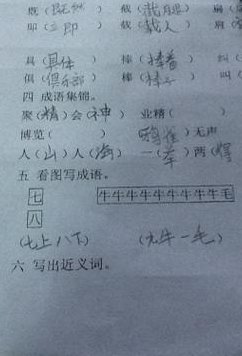 既（既然） 载（载
即（立即） 载（载人）
具（具体 棒（
俱（俱乐部） 棒（棒 叫（
四 成语集锦。
聚（精）会（神） 业精（
博览（ ）（鸦雀）无声
人（山）人（海） 一（举）两（得
五 看图写成语。
七 牛牛牛牛牛牛牛牛牛毛
八
（七上八下） （九牛一毛）
六 写出近义词。